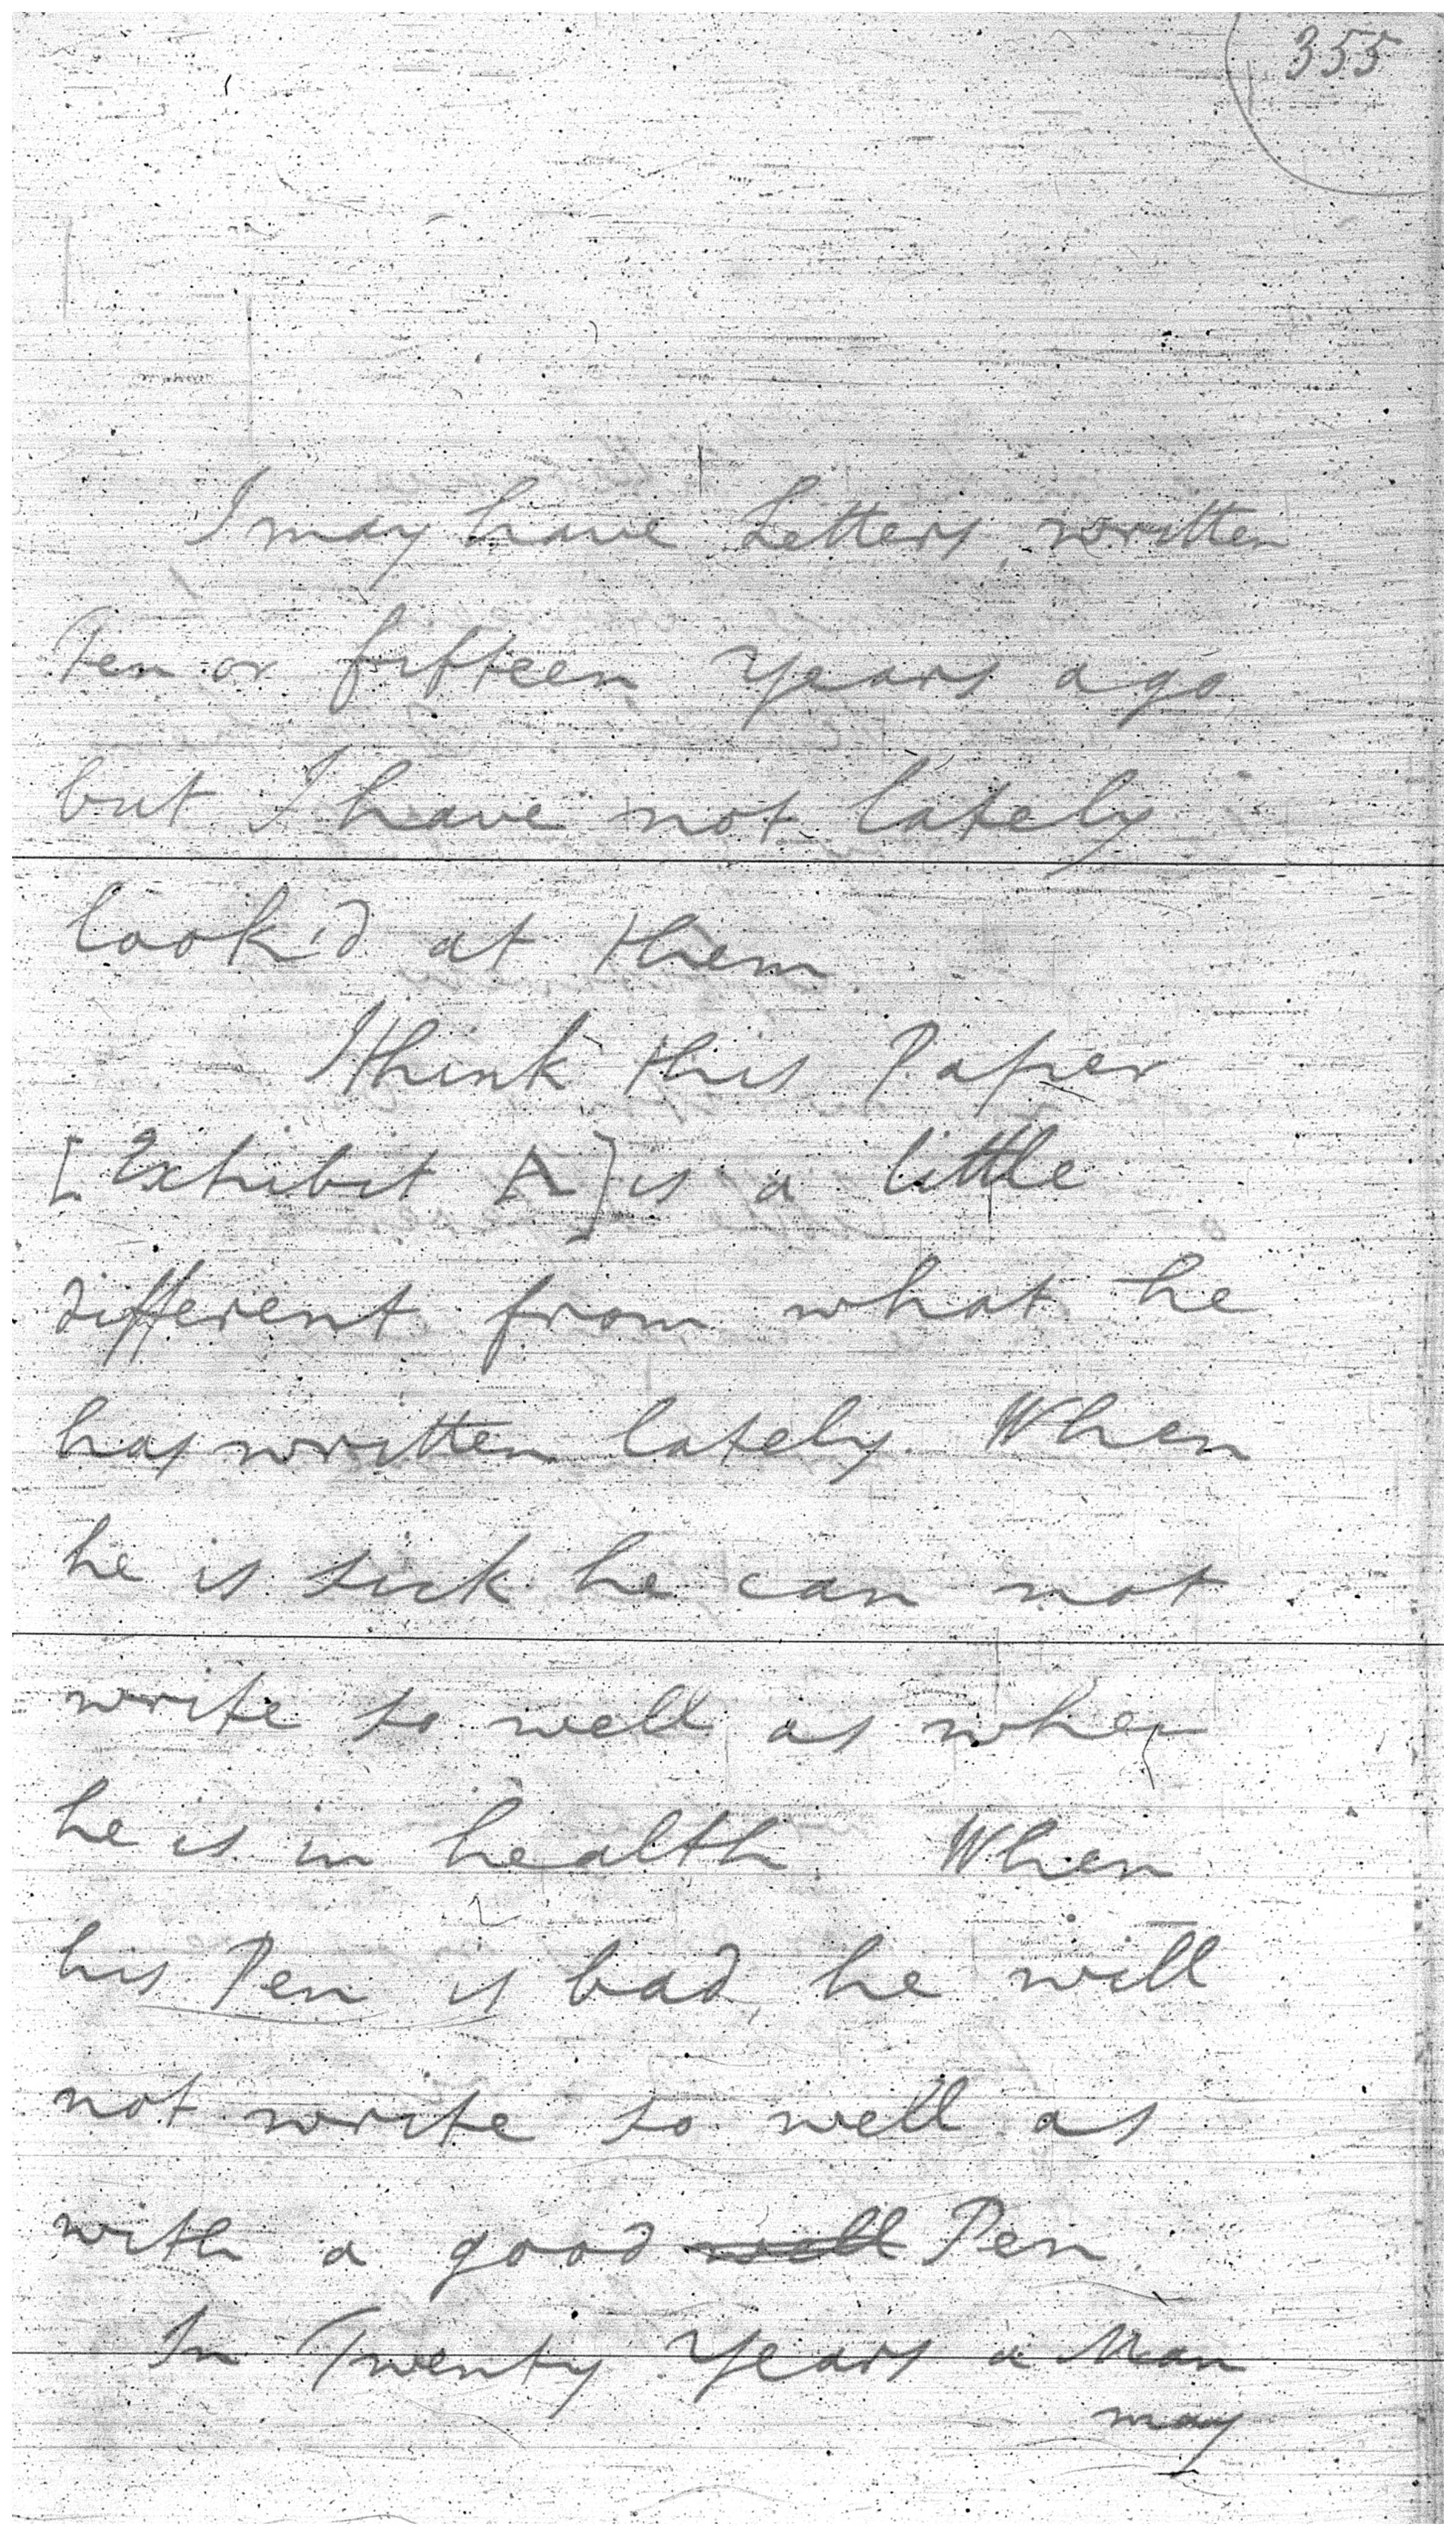 355
I may have Letters, written
Ten or fifteen Years ago,
but I have not lately
look'd at them.
I think this Paper
[Exhibit A] is a little
different from what he
has written lately. When
he is sick he can not
write so well as when
he is in health. When
his Pen is bad, he will
not write so well as
with a good well Pen.
In Twenty Years a Man
may